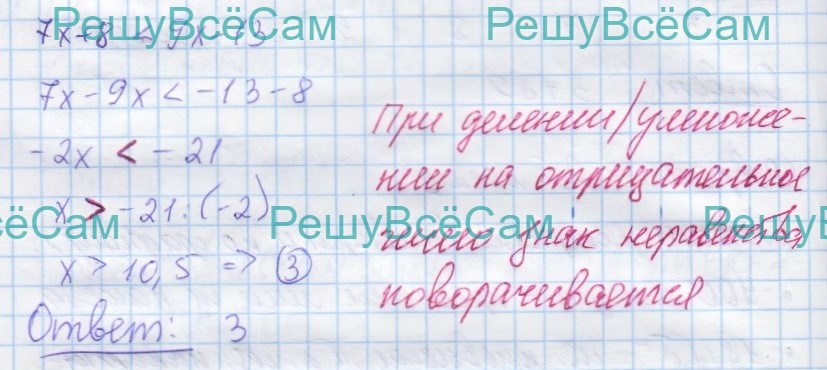 РешуВсёСам РешуВсёСам
7x+8 < 9x-13
7x-9x < -13-8
-2x < -21
x > -21:(-2)
x > 10,5 => 3
Ответ: 3
При делении/умноже-
нии на отрицательное
число знак неравенства
поворачивается
ёСам РешуВсёСам РешуВсё